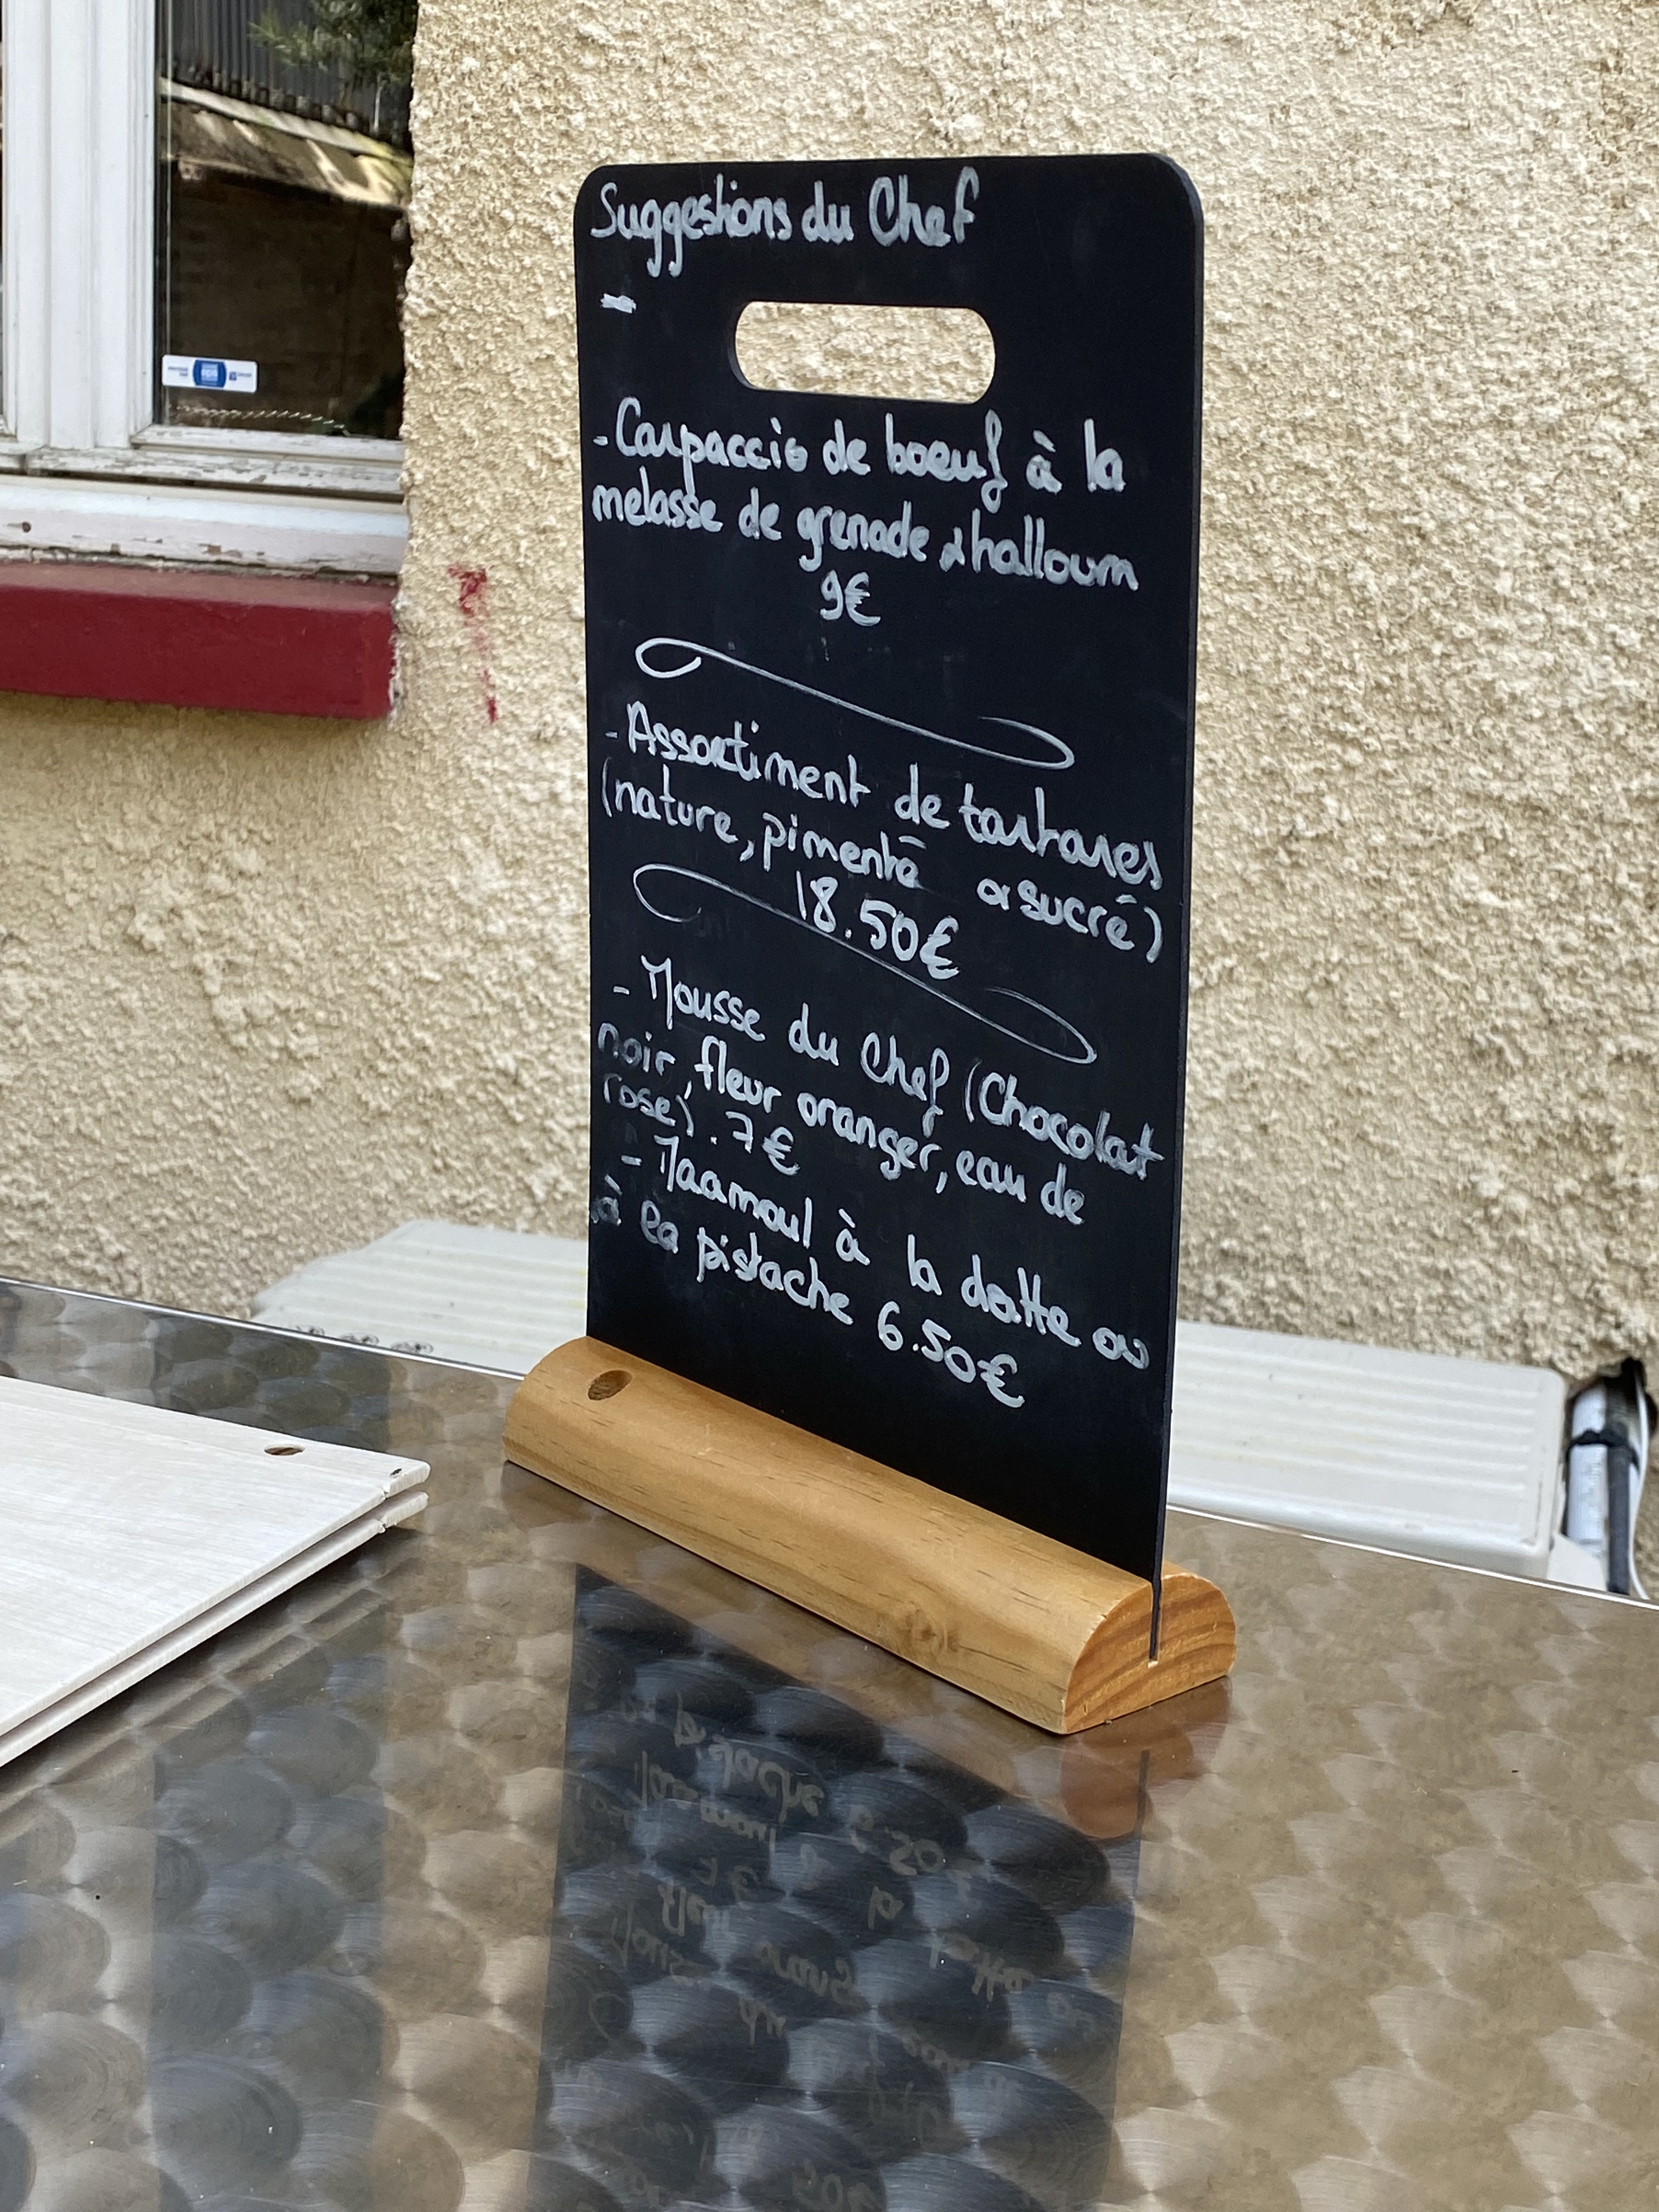 Suggestions du Chef
- Carpaccio de boeuf à la
melasse de grenade & halloum
9€
- Assortiment de tartares
(nature, pimenté & sucré)
18.50€
- Mousse du Chef (Chocolat
noir, fleur oranger, eau de
rose). 7€
- Maamoul à la datte ou
à la pistache 6.50€